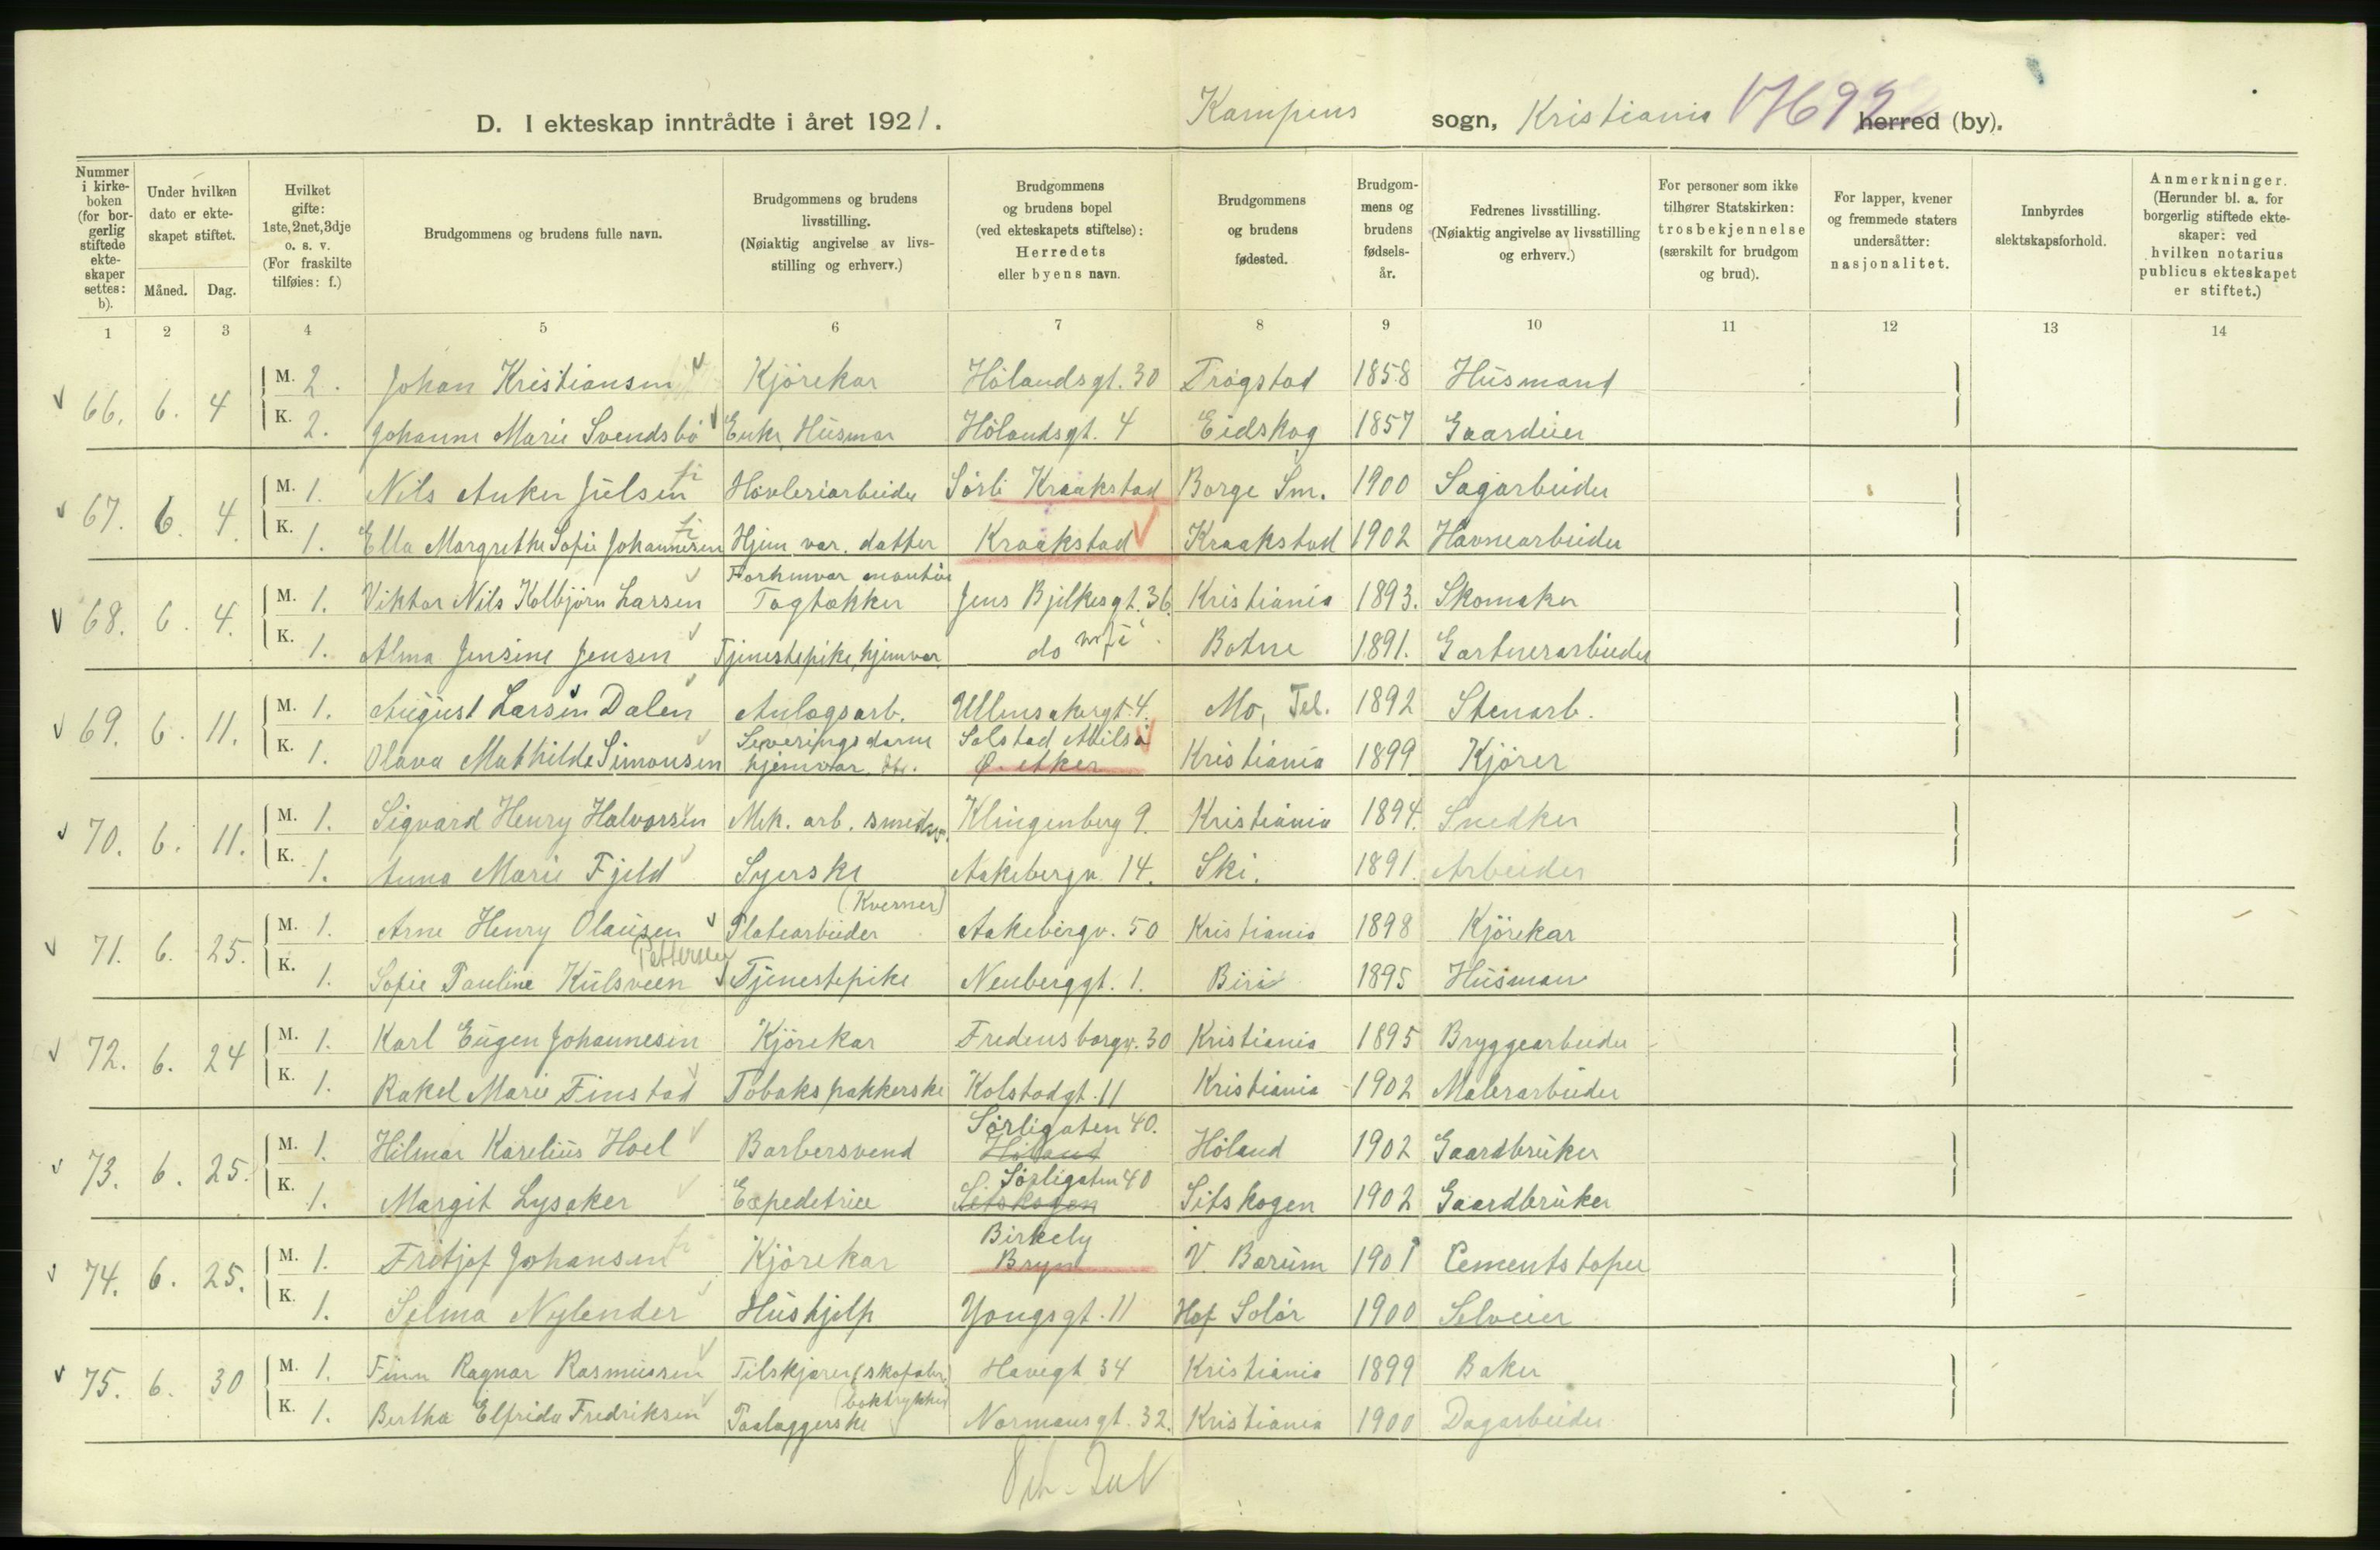 D. I ekteskap inntrådte i året 1921. Kampens sogn, Kristiania 17692 herred (by).
Nummer i kirke-boken (for bor-gerlig stiftede ekte-skaper settes: b). Under hvilken dato er ekte-skapet stiftet. Måned. Dag. Hvilket gifte: 1ste, 2net, 3dje o. s. v. (For fraskilte tilføies: f.) Brudgommens og brudens fulle navn. Brudgommens og brudens livsstilling. (Nøiaktig angivelse av livs-stilling og erhverv.) Brudgommens og brudens bopel (ved ekteskapets stiftelse): Herredets eller byens navn. Brudgommens og brudens fødested. Brudgom-mens og brudens fødsels-år. Fedrenes livsstilling. (Nøiaktig angivelse av livsstilling og erhverv.) For personer som ikke tilhører Statskirken: trosbekjennelse (særskilt for brudgom og brud). For lapper, kvener og fremmede staters undersåtter: nasjonalitet. Innbyrdes slektskapsforhold. Anmerkninger. (Herunder bl. a. for borgerlig stiftede ekte-skaper: ved hvilken notarius publicus ekteskapet er stiftet.)
1 2 3 4 5 6 7 8 9 10 11 12 13 14
66. 6. 4 M. 2. Johan Kristiansen Kjörekar Hölandsgt. 30 Trögstad 1858 Husmand
K. 2. Johanne Marie Svendsbö Enke, Husmor Hölandsgt. 4 Eidskog 1857 Gaardeier
67. 6. 4. M. 1. Nils Anker Julsen Hövleriarbeider Sörli Kraakstad Borge Sm. 1900 Sagarbeider
K. 1. Ella Margrethe Sofie Johannesen Hjem. vær. datter Kraakstad Kraakstad 1902 Havnearbeider
68. 6. 4. M. 1. Viktor Nils Kolbjörn Larsen Tagtækker Jens Bjelkesgt. 36. Kristiania 1893. Skomaker
K. 1. Alma Jensine Jensen Tjenestepike, hjemvær. do Botne 1891. Gartnerarbeider
69. 6. 11. M. 1. August Larsen Dalen Anlægsarb. Ullensakergt. 4. Mo, Tel. 1892 Stenarb.
K. 1. Olava Mathilde Simonsen Serveringsdame hjemvær. Solstad Ø. Aker Kristiania 1899 Kjörer
70. 6. 11. M. 1. Sigvard Henry Halvorsen Mek. arb. Klingenberg 9. Kristiania 1894. Snedker
K. 1. Anna Marie Fjeld Syerske Aakebergv. 14. Ski. 1891. Arbeider
71. 6. 25. M. 1. Arne Henry Olausen Platearbeider (Kværner) Aakebergv. 50 Kristiania 1898 Kjörekar
K. 1. Sofie Pauline Kulsveen Pettersen Tjenestepike Neuberggt. 1. Biri 1895 Husman
72. 6. 24 M. 1. Karl Eugen Johannesen Kjörekar Fredensborgv. 30 Kristiania 1895 Bryggearbeider
K. 1. Rakel Marie Finstad Tobakspakkerske Kolstadgt. 11 Kristiania 1902 Malerarbeider
73. 6. 25. M. 1. Hilmar Karelius Hoel Barbersvend Sörligaten 40. Höland Höland 1902 Gaardbruker
K. 1. Margit Lysaker Expeditrice Sörligaten 40 Setskogen Sitskogen 1902 Gaardbruker
74. 6. 25. M. 1. Fritjof Johansen Kjörekar Birkely Bryn V. Bærum 1901 Cementstöper
K. 1. Selma Nylender Hushjelp Yongsgt. 11 Hof Solör 1900 Selveier
75. 6. 30 M. 1. Finn Ragnar Rasmussen Tilskjærer (skofabr.) Havegt 34 Kristiania 1899 Baker
K. 1. Bertha Elfrida Fredriksen Paalæggerske (boktrykkeri) Normansgt. 32. Kristiania 1900 Dagarbeider